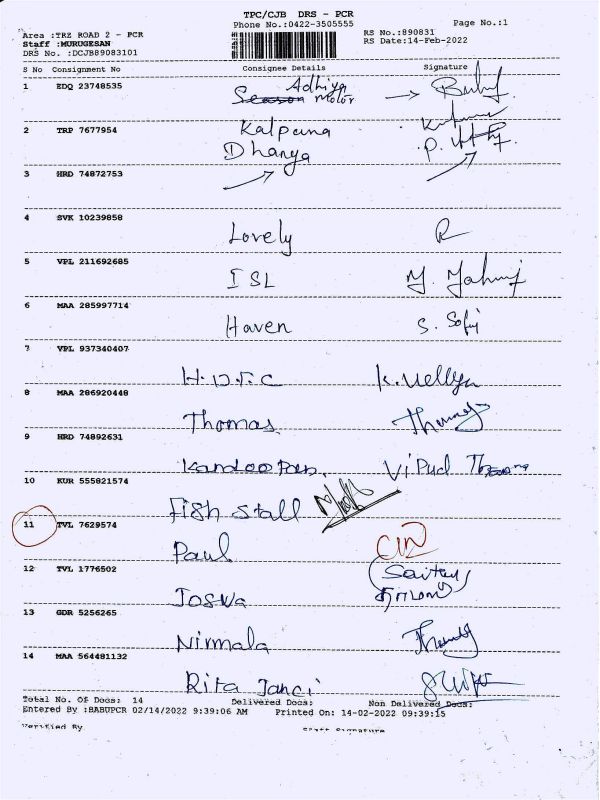 TPC/CJB DRS - PCR
Phone No.:0422-3505555
Page No.:1
Area :TRZ ROAD 2 - PCR
RS No.:890831
Staff :MURUGESAN
RS Date:14-Feb-2022
DRS No. :DCJB89083101
S No Consignment No Consignee Details Signature
1 EDQ 23748535 Adhiya
Season Motor
2 TRP 7677954 Kalpana
Dhanya P.
3 HRD 74872753
4 SVK 10239858
Lovely R
5 VPL 211692685
ISL
6 MAA 285997714
Haven S. Sofy
7 VPL 937340407
H.D.F.C
8 MAA 286920448
Thomas
9 HRD 74892631
10 KUR 555821574
Fish Stall
11 TVL 7629574
Paul
12 TVL 1776502
Joswa
13 GDR 5256265
Nirmala
14 MAA 564481132
Rita Janci
Total No. Of Docs: 14 Delivered Docs: Non Delivered Docs:
Entered By :BABUPCR 02/14/2022 9:39:06 AM Printed On: 14-02-2022 09:39:15
Verified By Staff Signature